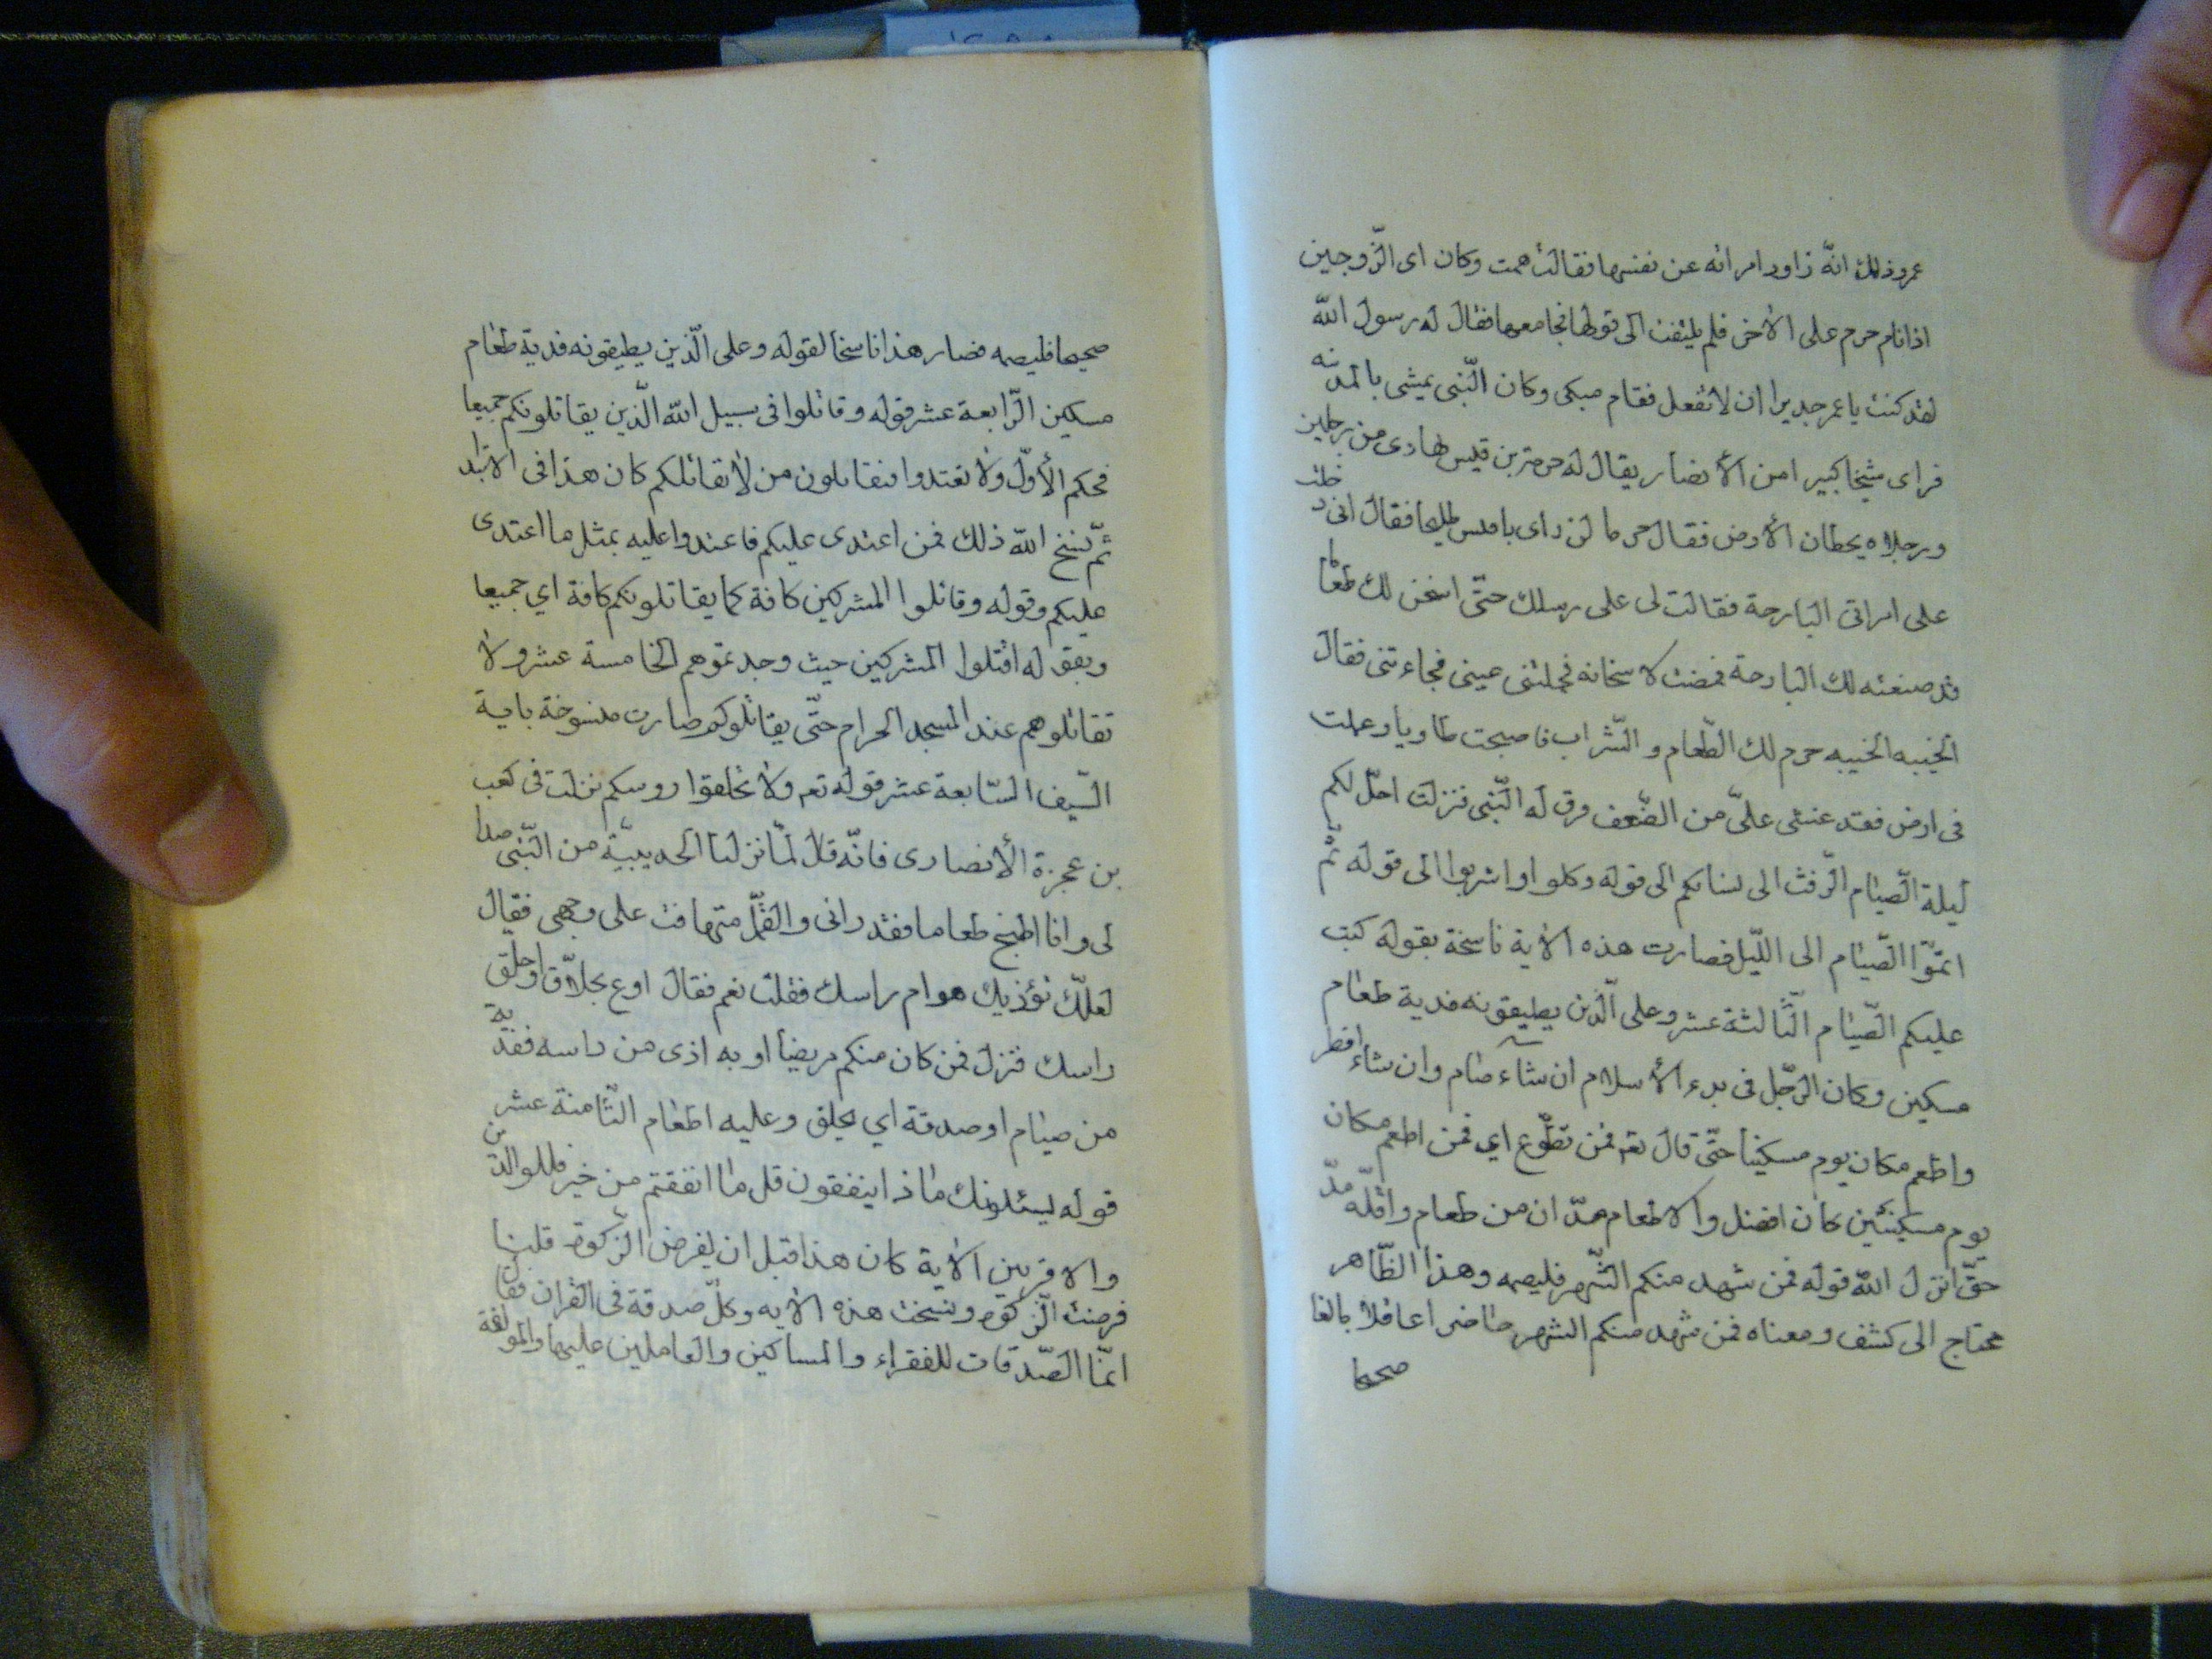 عمر وذلك انّه راود امراته عن نفسها فقالت نمت وكان اى الزّوجين
اذا نام حرم على الاخر فلم يلتفت الى قولها فجامعها فقال له رسول الله
لقد كنت يا عمر جديرا ان لا تفعل فقام يبكى وكان النّبى يمشى بالمدينه
فراى شيخا كبيرا من الأنصار يقال له صرمة بن قيس يهادى من رجلين
ورجلاه يخطان الأرض فقال فقال انى دخلت
على امراتى البارحة فقالت لى على رسلك حتّى اسخن لك طعاما
قد صنعته لك البارحة فمضت لاسخانه فحملتنى عينى فجاءتنى فقال
الخيبه الخيبه حرم لك الطّعام والشّراب فاصبحت طاويا وعملت
فى ارض فقد غشى علىّ من الضّعف فرق له النّبى فنزلت احلّ لكم
ليلة الصّيام الرّفث الى نسائكم الى قوله وكلوا واشربوا الى قوله ثمّ
اتمّوا الصّيام الى اللّيل فصارت هذه الاية ناسخة بقوله كتب
عليكم الصّيام الثّالثة عشر وعلى الّذين يطيقونه فدية طعام
مسكين وكان الرّجل فى بدء الأسلام ان شاء صام وان شاء افطر
واطعم مكان يوم مسكينا حتّى قال تع فمن تطوّع اي فمن اطعم مكان
يوم مسكينين كان افضل والاطعام مدّان من طعام واقلّه مدّ
حتّى انزل الله قوله فمن شهد منكم الشّهر فليصمه وهذا الظّاهر
محتاج الى كشف ومعناه فمن شهد منكم الشهر حاضرا عاقلا بالغا
صحيحا
صحيحا فليصمه فصار هذا ناسخا لقوله وعلى الّذين يطيقونه فدية طعام
مسكين الرّابعة عشر قوله وقاتلوا فى سبيل الله الّذين يقاتلونكم جميعا
محكم الأوّل ولا تعتدوا فتقاتلون من لا يقاتلكم كان هذا فى الابتداء
ثمّ نسخ الله ذلك فمن اعتدى عليكم فاعتدوا عليه بمثل ما اعتدى
عليكم وقوله وقاتلوا المشركين كافة كما يقاتلونكم كافة اي جميعا
وبقوله اقتلوا المشركين حيث وجدتموهم الخامسة عشر ولا
تقاتلوهم عند المسجد الحرام حتّى يقاتلوكم صارت منسوخة باية
السّيف السّابعة عشر قوله تع ولا تحلقوا روسكم نزلت فى كعب
بن عجرة الأنصارى فانّه قال لمّا نزلنا الحديبيّة من النّبى
لى وانا اطبخ طعاما فقد رانى والقمّل متهافت على وجهى فقال
لعلّك تؤذيك هوام راسك فقلت نعم فقال ادع بحلّاق احلق
راسك فنزل فمن كان منكم مريضا او به اذى من راسه ففدية
من صيام او صدقة اي يحلق وعليه اطعام الثّامنة عشر
قوله يسئلونك ماذا ينفقون قل ما انفقتم من خير فللوالدين
والاقربين الاية كان هذا قبل ان يفرض الزّكوة فلمّا
فرضت الزّكوة ونسخت هذه الايه وكلّ صدقة فى القران فقال
انمّا الصّدقات للفقراء والمساكين والعاملين عليها والمولّفة